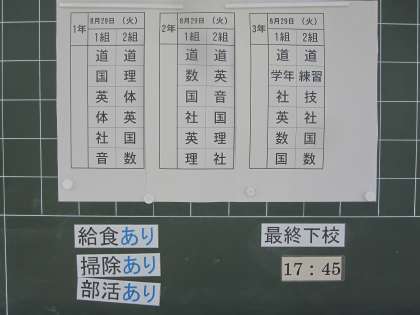 1年 8月29日 (火)
1組 2組
道 道
国 理
英 体
体 英
社 国
音 数
2年 8月29日 (火)
1組 2組
道 道
数 英
国 音
社 国
英 理
理 社
3年 8月29日 (火)
1組 2組
道 道
学年 練習
社 技
英 社
数 国
国 数
給食あり
掃除あり
部活あり
最終下校
17:45